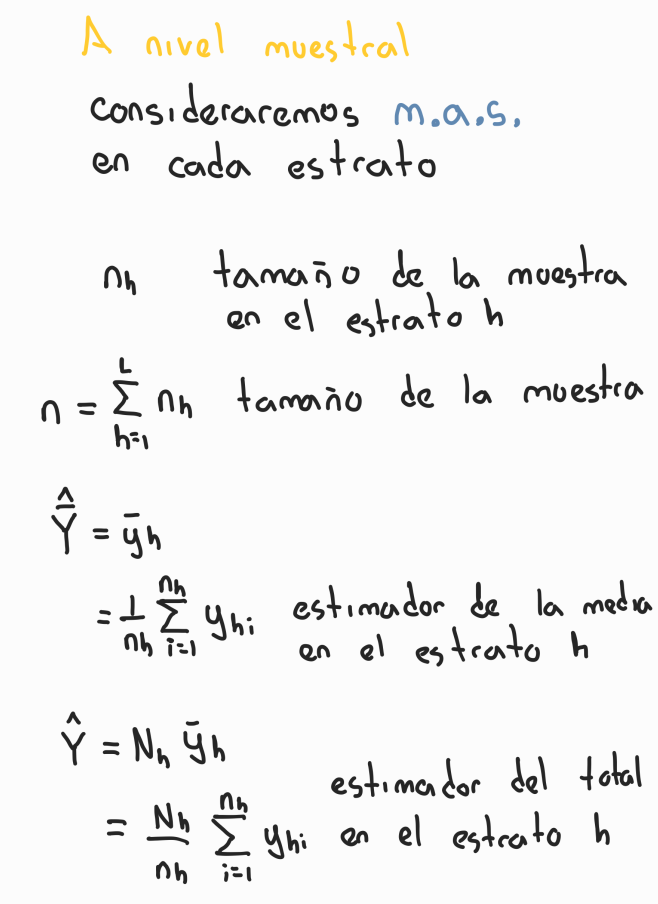 A nivel muestral
consideraremos m.a.s.
en cada estrato
n_h tamaño de la muestra
en el estrato h
n = \sum_{h=1}^{L} n_h tamaño de la muestra
\hat{\bar{Y}} = \bar{y}_h
= \frac{1}{n_h} \sum_{i=1}^{n_h} y_{hi} estimador de la media
en el estrato h
\hat{Y} = N_h \bar{y}_h
estimador del total
= \frac{N_h}{n_h} \sum_{i=1}^{n_h} y_{hi} en el estrato h